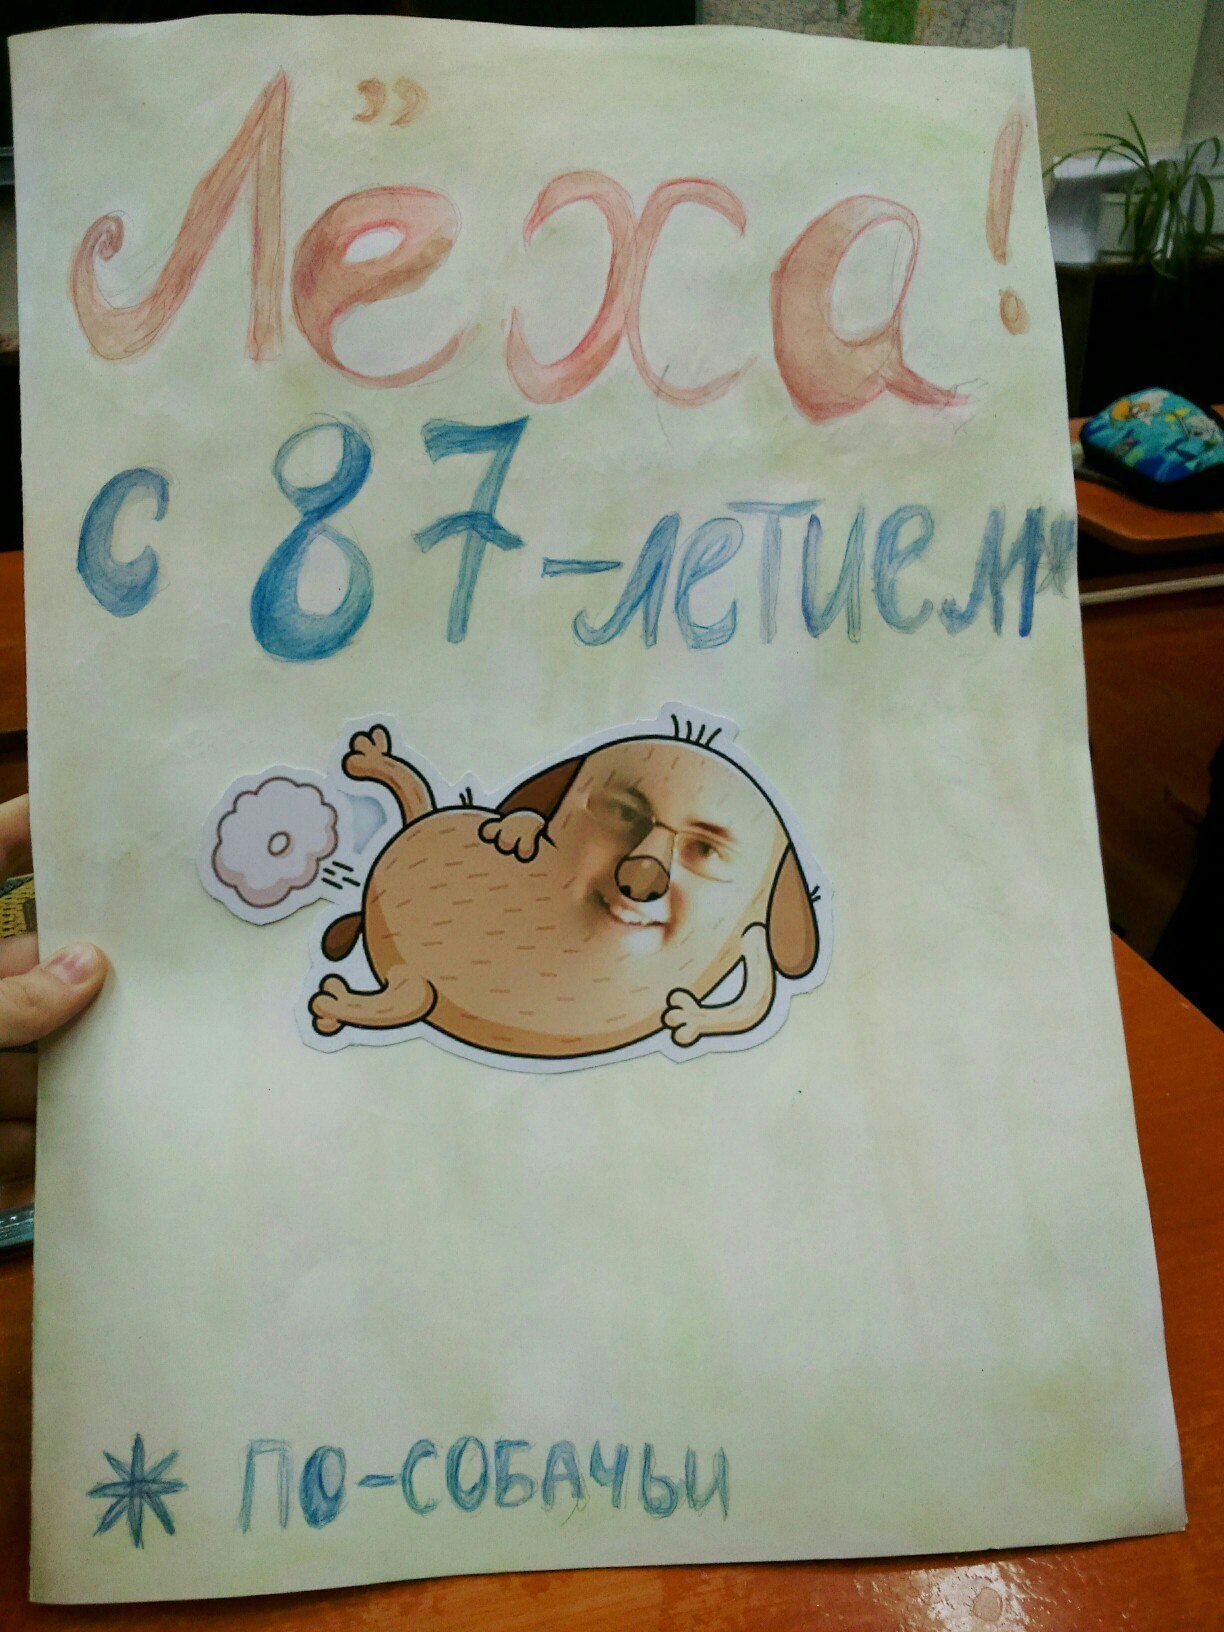 Лёха!
с 87-летием*
* по-собачьи